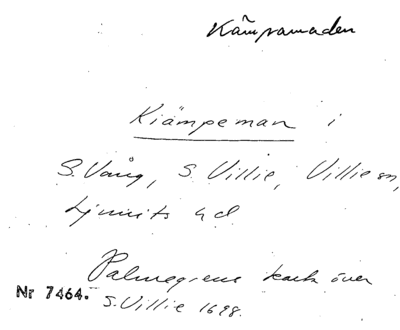 Kämpamaden
Kiämpeman i
S. Vång, S. Villie, Villie sn,
Ljunits hd
Palmegrens karta över
Nr 7464. S. Villie 1698.